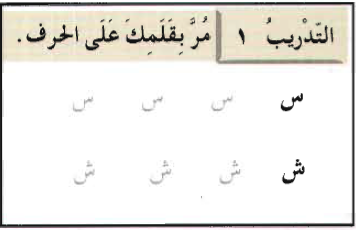 التّدْريبُ ١ مُرَّ بِقَلَمِكَ عَلَى الحرف.
س س س س
ش ش ش ش